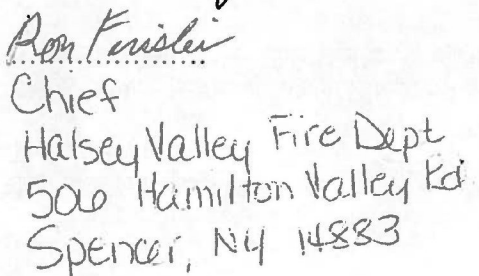 Ron
Chief
Halsey Valley Fire Dept
506 Hamilton Valley Rd
Spencer, NY 14883